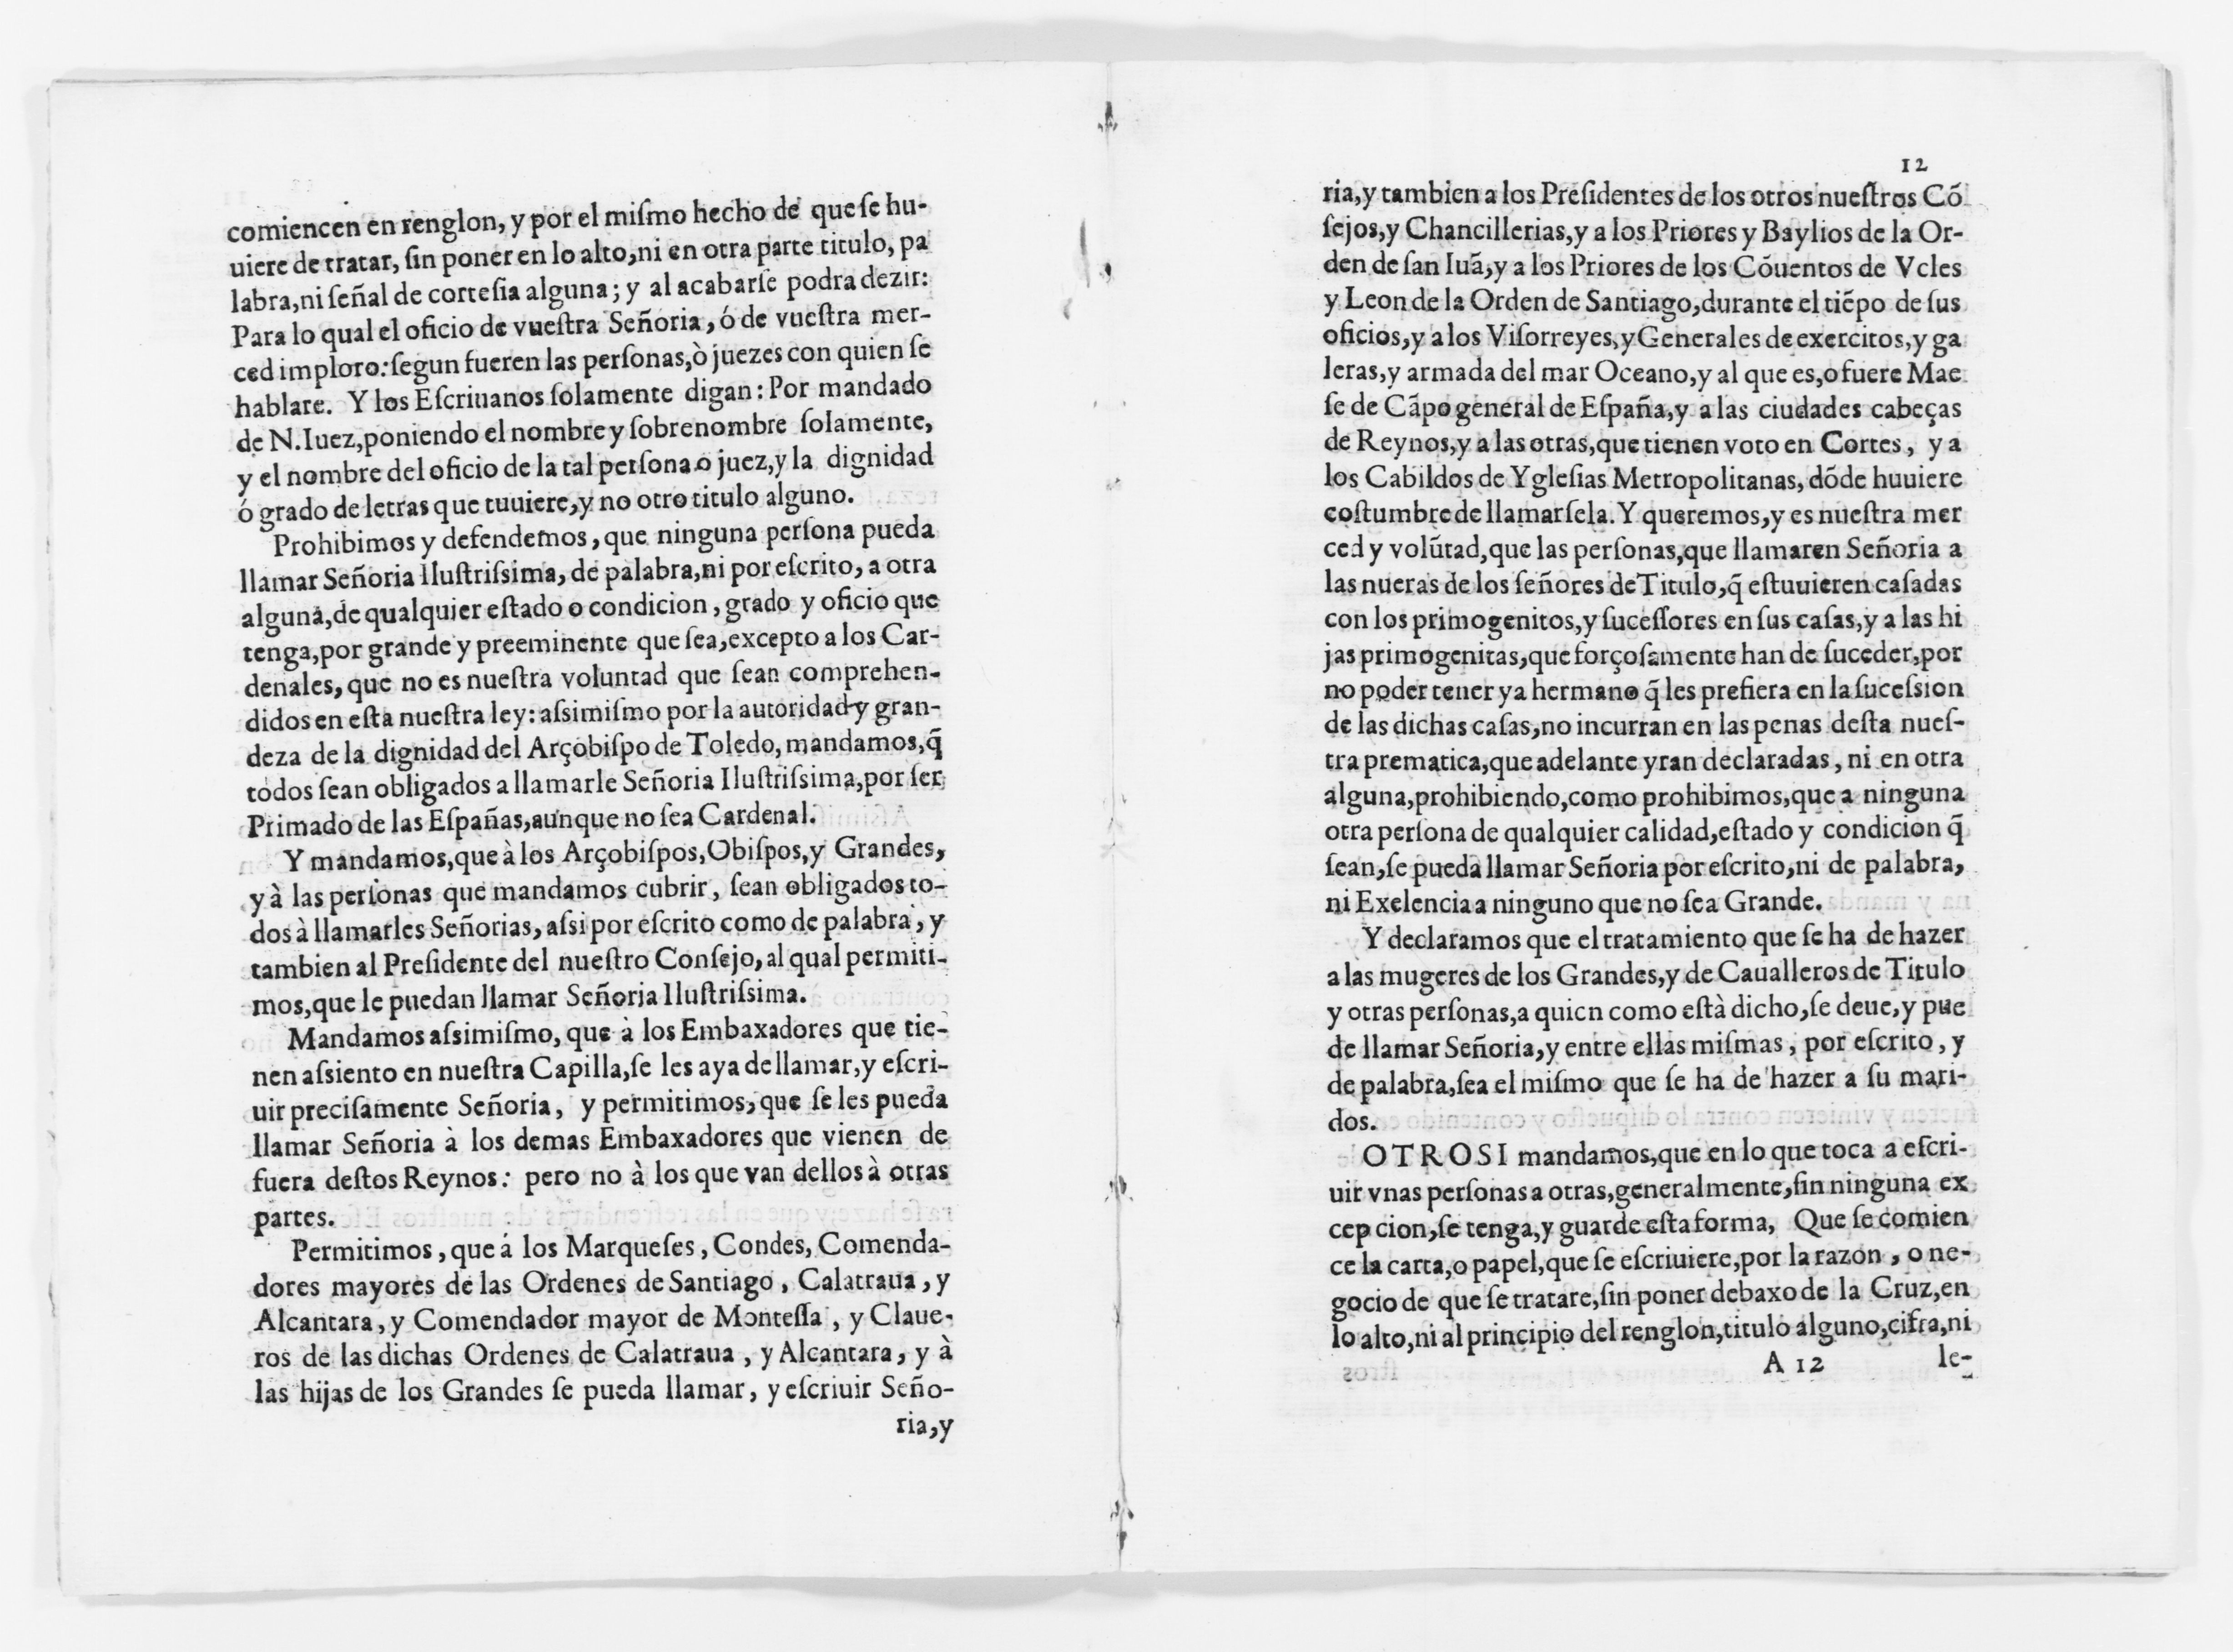 comiencen en renglon, y por el miſmo hecho de que ſe hu-
uiere de tratar, ſin poner en lo alto, ni en otra parte titulo, pa
labra, ni ſeñal de corteſia alguna; y al acabarſe podra dezir:
Para lo qual el oficio de vueſtra Señoria, ó de vueſtra mer-
ced imploro: ſegun fueren las perſonas, ò juezes con quien ſe
hablare. Y los Eſcriuanos ſolamente digan: Por mandado
de N. Iuez, poniendo el nombre y ſobrenombre ſolamente,
y el nombre del oficio de la tal perſona o juez, y la dignidad
ó grado de letras que tuuiere, y no otro titulo alguno.
Prohibimos y defendemos, que ninguna perſona pueda
llamar Señoria Iluſtriſsima, de palabra, ni por eſcrito, a otra
alguna, de qualquier eſtado o condicion, grado y oficio que
tenga, por grande y preeminente que ſea, excepto a los Car-
denales, que no es nueſtra voluntad que ſean comprehen-
didos en eſta nueſtra ley: aſsimiſmo por la autoridad y gran-
deza de la dignidad del Arçobiſpo de Toledo, mandamos, q̃
todos ſean obligados a llamarle Señoria Iluſtriſsima, por ſer
Primado de las Eſpañas, aunque no ſea Cardenal.
Y mandamos, que à los Arçobiſpos, Obiſpos, y Grandes,
y à las perſonas que mandamos cubrir, ſean obligados to-
dos à llamarles Señorias, aſsi por eſcrito como de palabra, y
tambien al Preſidente del nueſtro Conſejo, al qual permiti-
mos, que le puedan llamar Señoria Iluſtriſsima.
Mandamos aſsimiſmo, que à los Embaxadores que tie-
nen aſsiento en nueſtra Capilla, ſe les aya de llamar, y eſcri-
uir preciſamente Señoria, y permitimos, que ſe les pueda
llamar Señoria à los demas Embaxadores que vienen de
fuera deſtos Reynos: pero no à los que van dellos à otras
partes.
Permitimos, que á los Marqueſes, Condes, Comenda-
dores mayores de las Ordenes de Santiago, Calatraua, y
Alcantara, y Comendador mayor de Monteſſa, y Claue-
ros de las dichas Ordenes de Calatraua, y Alcantara, y à
las hijas de los Grandes ſe pueda llamar, y eſcriuir Seño-
ria, y
12
ria, y tambien a los Preſidentes de los otros nueſtros Cõ
ſejos, y Chancillerias, y a los Priores y Baylios de la Or-
den de ſan Iuã, y a los Priores de los Cõuentos de Vcles
y Leon de la Orden de Santiago, durante el tiẽpo de ſus
oficios, y a los Viſorreyes, y Generales de exercitos, y ga
leras, y armada del mar Oceano, y al que es, o fuere Mae
ſe de Cãpo general de Eſpaña, y a las ciudades cabeças
de Reynos, y a las otras, que tienen voto en Cortes, y a
los Cabildos de Ygleſias Metropolitanas, dõde huuiere
coſtumbre de llamarſela. Y queremos, y es nueſtra mer
ced y volũtad, que las perſonas, que llamaren Señoria a
las nueras de los ſeñores de Titulo, q̃ eſtuuieren caſadas
con los primogenitos, y ſuceſſores en ſus caſas, y a las hi
jas primogenitas, que forçoſamente han de ſuceder, por
no poder tener ya hermano q̃ les prefiera en la ſuceſsion
de las dichas caſas, no incurran en las penas deſta nueſ-
tra prematica, que adelante yran declaradas, ni en otra
alguna, prohibiendo, como prohibimos, que a ninguna
otra perſona de qualquier calidad, eſtado y condicion q̃
ſean, ſe pueda llamar Señoria por eſcrito, ni de palabra,
ni Exelencia a ninguno que no ſea Grande.
Y declaramos que el tratamiento que ſe ha de hazer
a las mugeres de los Grandes, y de Caualleros de Titulo
y otras perſonas, a quien como eſtà dicho, ſe deue, y pue
de llamar Señoria, y entre ellas miſmas, por eſcrito, y
de palabra, ſea el miſmo que ſe ha de hazer a ſu mari-
dos.
OTROSI mandamos, que en lo que toca a eſcri-
uir vnas perſonas a otras, generalmente, ſin ninguna ex
cepcion, ſe tenga, y guarde eſta forma, Que ſe comien
ce la carta, o papel, que ſe eſcriuiere, por la razon, o ne-
gocio de que ſe tratare, ſin poner debaxo de la Cruz, en
lo alto, ni al principio del renglon, titulo alguno, cifra, ni
A 12 le-